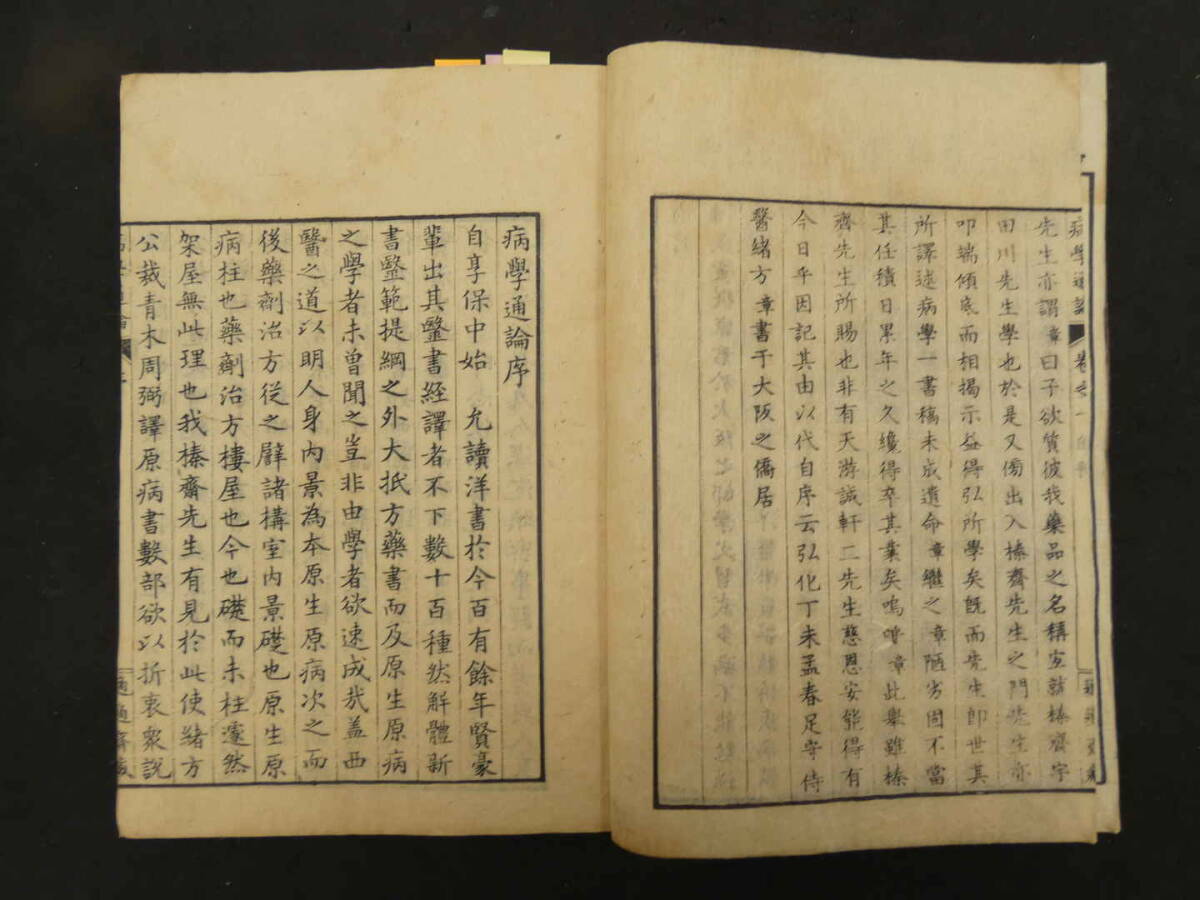 病學通論 卷之一 自序
先生亦謂章曰子欲質彼我藥品之名稱宜就榛齋宇
田川先生學也於是又傍出入榛齋先生之門先生亦
叩端傾底而相揭示益得弘所學矣既而先生即世其
所譯述病學一書稿未成遺命章繼之章陋劣固不當
其任積日累年之久纔得卒其業矣嗚嘑章此擧雖榛
齊先生所賜也非有天游誠軒二先生慈恩安能得有
今日乎因記其由以代自序云弘化丁未孟春足守侍
醫緒方章書于大阪之僑居
病學通論序
自享保中始 允讀洋書於今百有餘年賢豪
輩出其毉書經譯者不下數十百種然解體新
書毉範提綱之外大抵方藥書而及原生原病
之學者未曾聞之豈非由學者欲速成哉盖西
醫之道以明人身內景為本原生原病次之而
後藥劑治方從之辟諸構室內景礎也原生原
病柱也藥劑治方樓屋也今也礎而未柱遽然
架屋無此理也我榛齋先生有見於此使緒方
公裁青木周弼譯原病書數部欲以折衷衆說